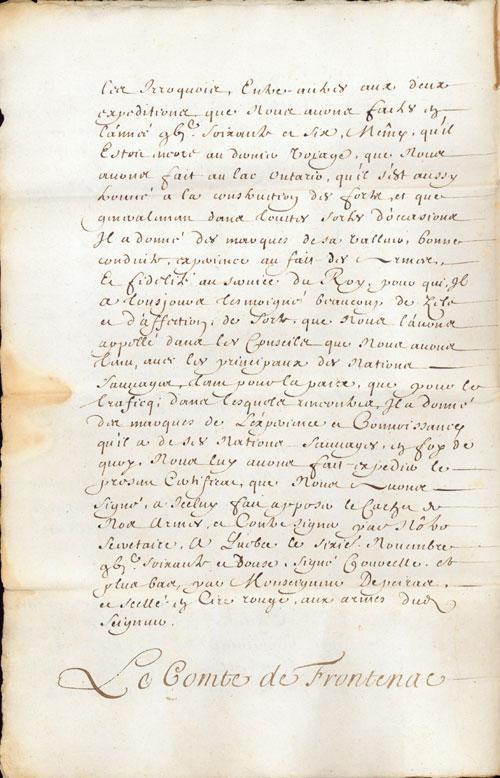 les Irroquois, Entre autres aux deux
expeditions, que Nous avons faites en
l'année gbjc. Soixante et Six, Mesme, qu'il
Estoit encore au dernier voyage, que Nous
avons fait au lac Ontario, qu'il s'est aussy
trouvé a la construction des forts, et que
generalement dans toutes sortes d'occasions
Il a donné des marques de sa valleur, bonne
conduite, experience au fait des Armes,
Et fidelité au service du Roy, pour qui, Il
a tousjours tesmoigné beaucoup de Zele
et d'affection, de sorte, que Nous l'avons
appellé dans les Conseils que Nous avons
tenu, avec les principaux des Nations
Sauvages, tant pour la paix, que pour le
traficq; dans lesquels rencontres, Il a donné
des marques de L'experience et Connoissance
qu'il a de ses Nations Sauvages, en foy de
quoy, Nous luy avons fait expedier le
present Certificat, que Nous Avons
signé, a Iceluy fait apposer le Cachet de
Nos Armes, et Contresigner par Nôtre
Secretaire, A Quebec le sixies. Novembre
gbjc. Soixante et douze, signé Courcelle, et
plus bas, par Monseigneur Depeiras,
et scellé en Cire rouge, aux armes dud
Seigneur.
Le Comte de Frontenac